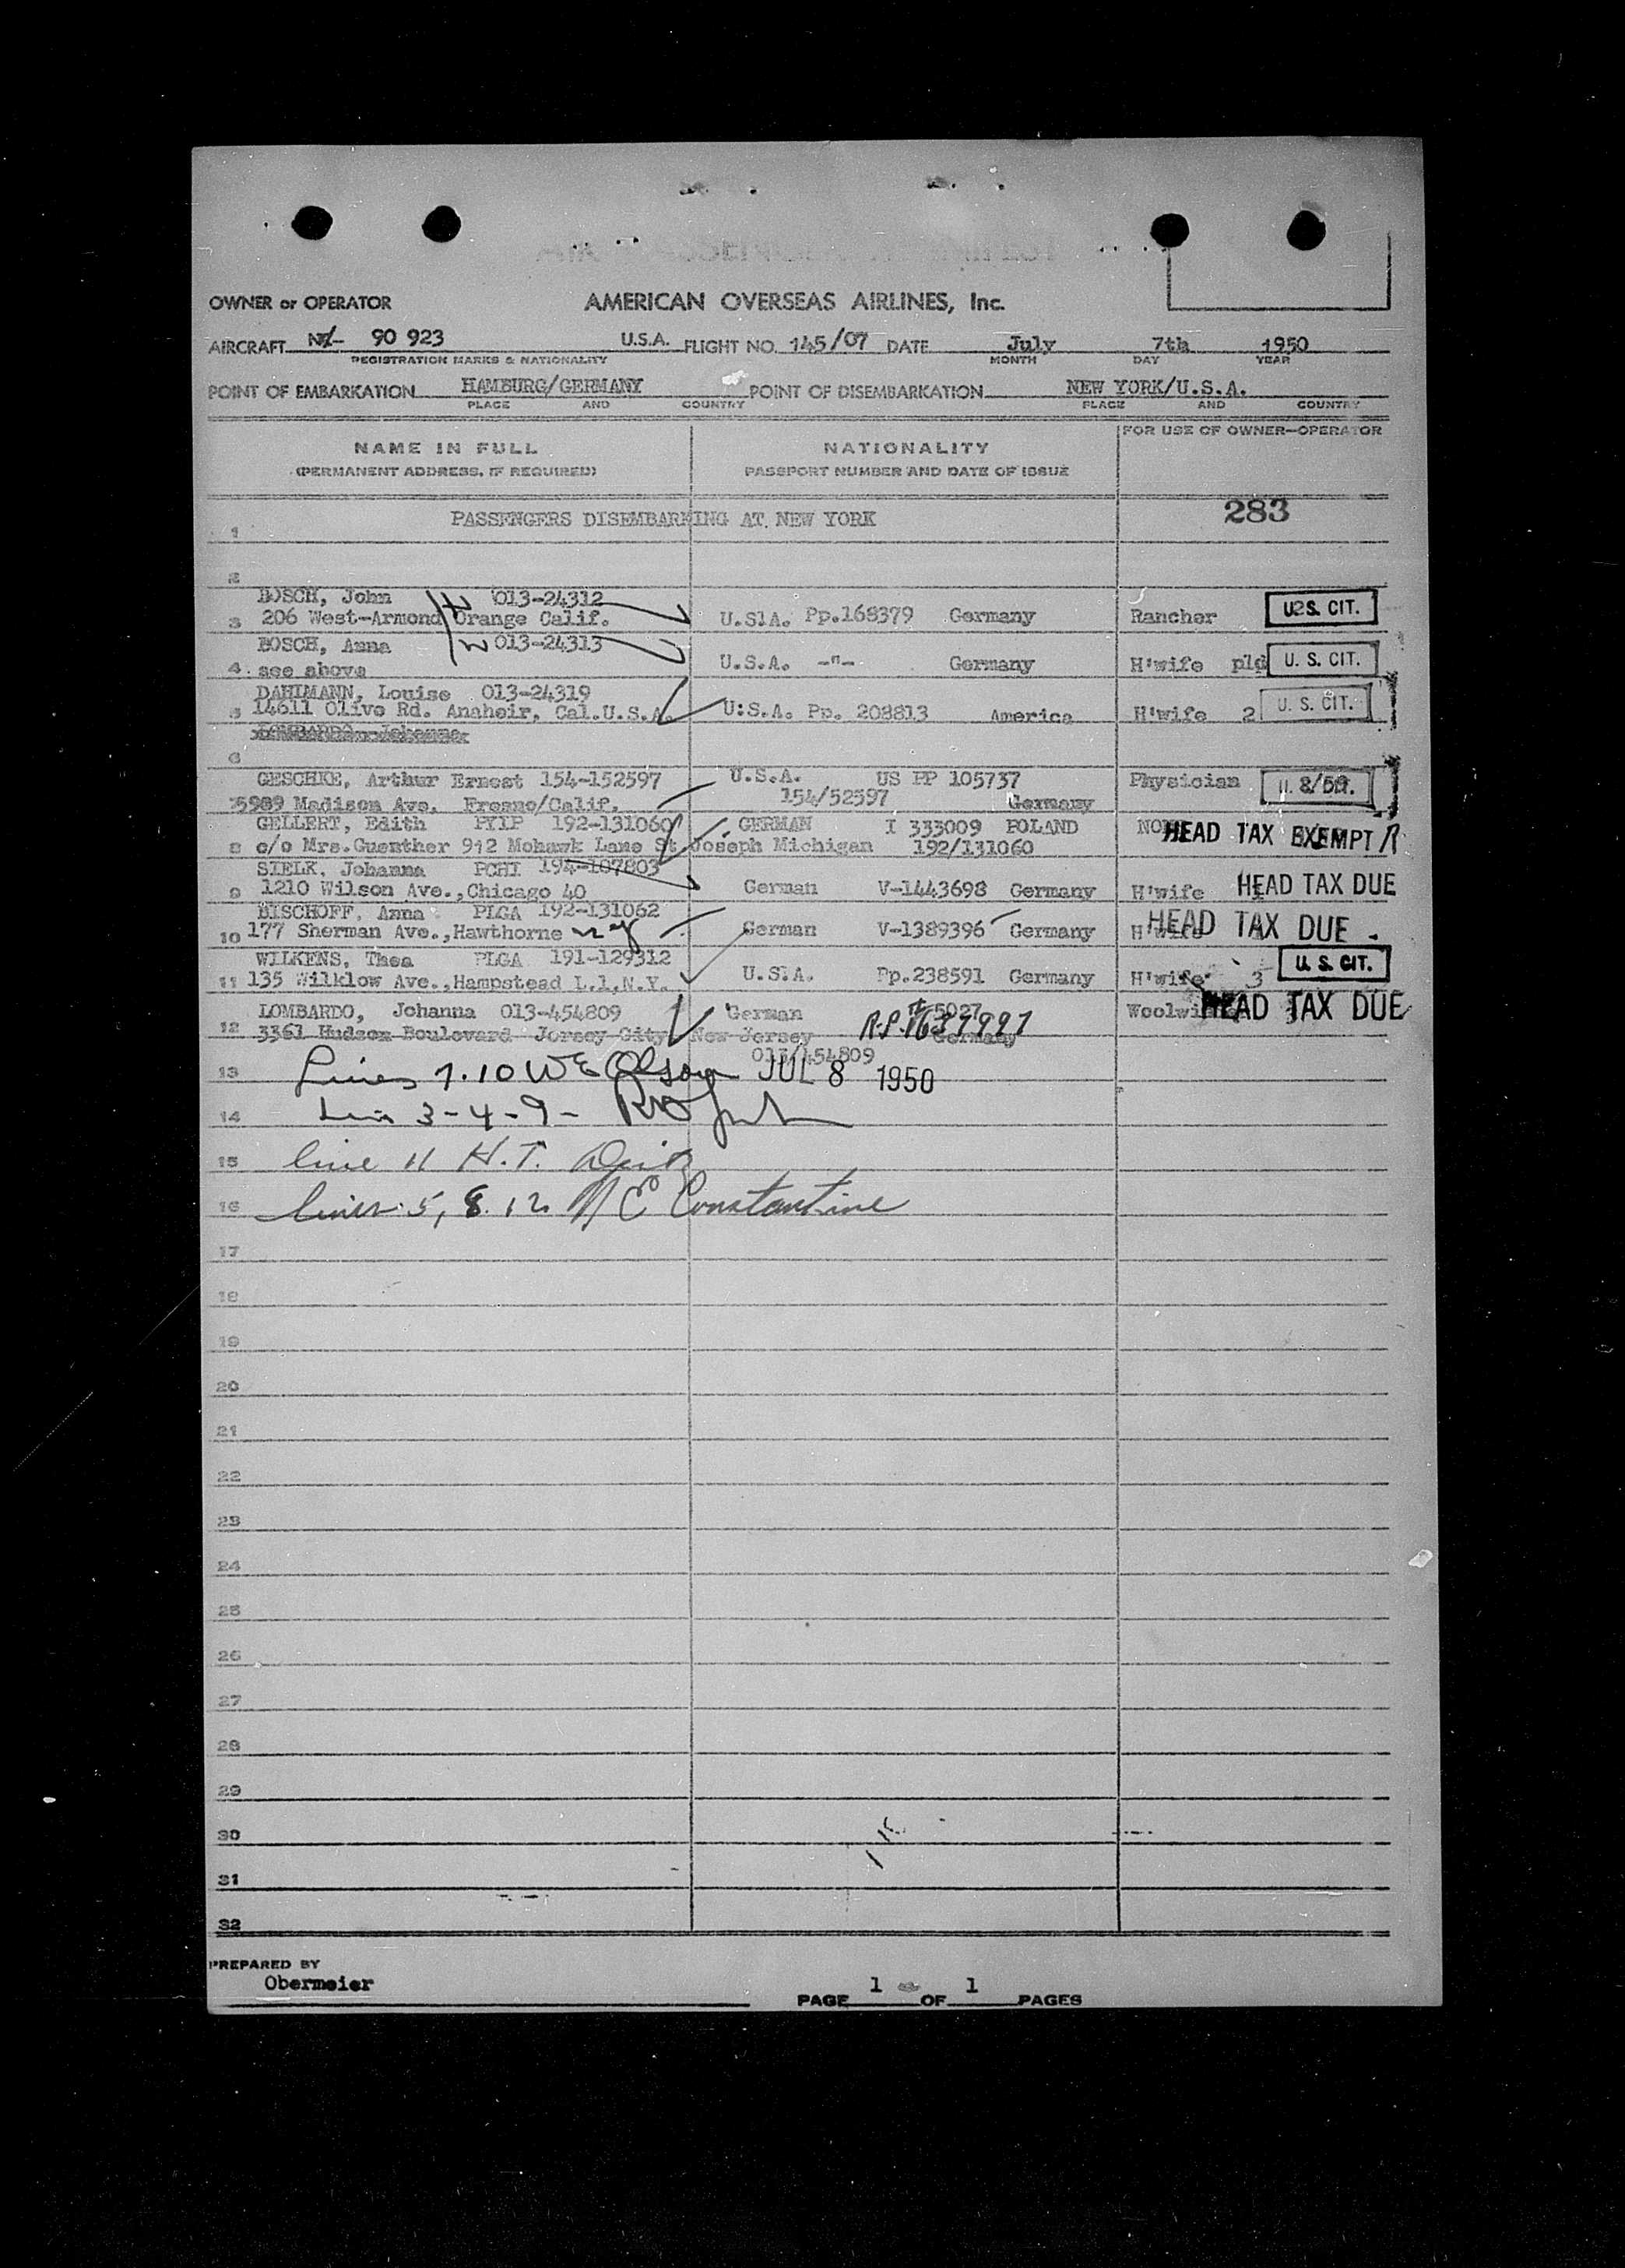 OWNER or OPERATOR AMERICAN OVERSEAS AIRLINES, Inc.
AIRCRAFT 90 923 U.S.A. FLIGHT NO. 145/07 DATE July 7th 1950
REGISTRATION MARKS & NATIONALITY MONTH DAY YEAR
POINT OF EMBARKATION HAMBURG/GERMANY POINT OF DISEMBARKATION NEW YORK/U.S.A.
PLACE AND COUNTRY PLACE AND COUNTRY
FOR USE OF OWNER-OPERATOR
NAME IN FULL NATIONALITY
(PERMANENT ADDRESS, IF REQUIRED) PASSPORT NUMBER AND DATE OF ISSUE
283
1 PASSENGERS DISEMBARKING AT NEW YORK
2
BOSCH, John 013-24312
3 206 West-Armond Orange Calif. U.S.A. Pp.168379 Germany Rancher U2S. CIT.
BOSCH, Anna 013-24313
4 see above U.S.A. -"- Germany H'wife pld U. S. CIT.
DAHLMANN, Louise 013-24319
5 14611 Olive Rd. Anaheir, Cal.U.S.A. U.S.A. Pp. 208813 America H'wife 2 U. S. CIT.
LOMBARDO Johanna
6
GESCHKE, Arthur Ernest 154-152597 U.S.A. US PP 105737 Physician
5989 Madison Ave. Fresno/Calif. 154/52597 Germany
GELLERT, Edith PYIP 192-131060 GERMAN I 333009 POLAND HEAD TAX EXEMPT
8 c/o Mrs.Guenther 912 Mohawk Lane St Joseph Michigan 192/131060
SIELK, Johanna PCHI 194-107803
9 1210 Wilson Ave.,Chicago 40 German V-1443698 Germany H'wife HEAD TAX DUE
BISCHOFF, Anna PLGA 192-131062
10 177 Sherman Ave.,Hawthorne n y German V-1389396 Germany H'wife HEAD TAX DUE
WILKENS, Thea PLGA 191-129312
11 135 Wilklow Ave.,Hampstead L.I,N.Y. U.S.A. Pp.238591 Germany H'wife 3 U. S. CIT.
LOMBARDO, Johanna 013-454809 German 5027 HEAD TAX DUE
12 3361 Hudson Boulevard Jersey City New Jersey Germany
013/454809
13 Lines 7.10 WE Olson JUL 8 1950
14 3-4-9-
15 line 11 H.T.
16 lines 5, 8. 12 Constantine
17
18
19
20
21
22
23
24
25
26
27
28
29
30
31
32
PREPARED BY
Obermeier
PAGE 1 OF 1 PAGES